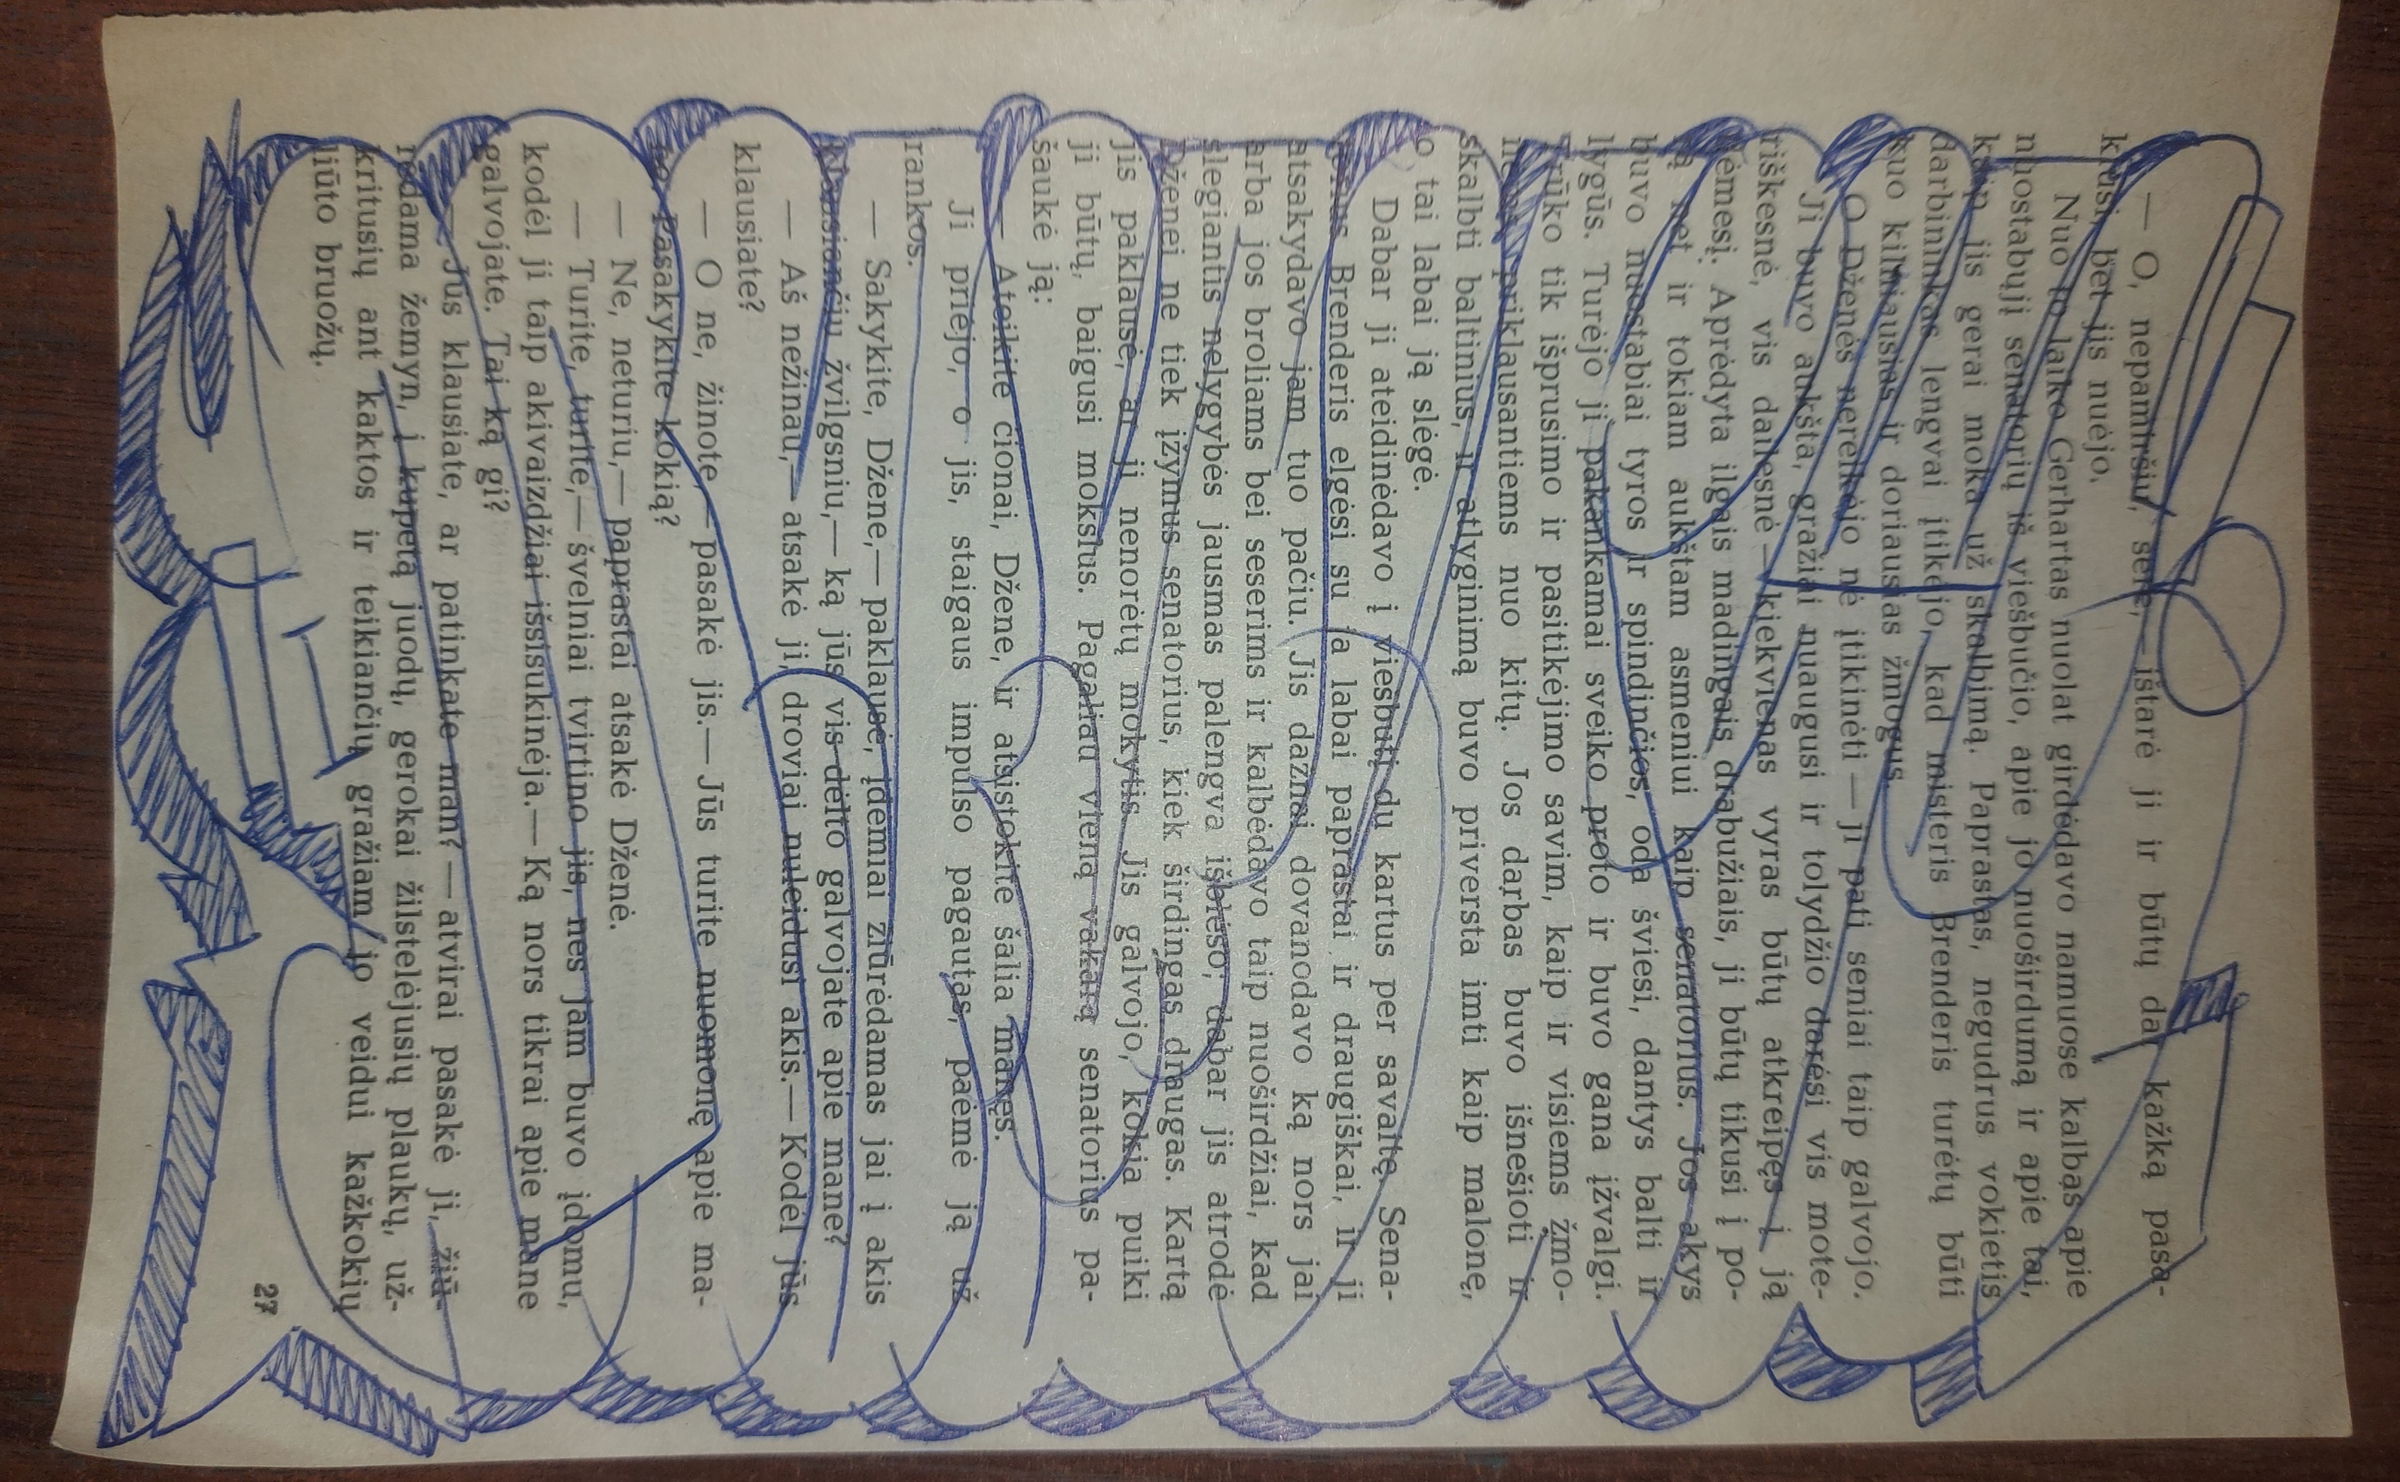 — O, nepamiršiu, sere,— ištarė ji ir būtų dar kažką pasa-
kiusi, bet jis nuėjo.
Nuo to laiko Gerhartas nuolat girdėdavo namuose kalbas apie
nuostabųjį senatorių iš viešbučio, apie jo nuoširdumą ir apie tai,
kaip jis gerai moka už skalbimą. Paprastas, negudrus vokietis
darbininkas lengvai įtikėjo, kad misteris Brenderis turėtų būti
kuo kilniausias ir doriausias žmogus.
O Dženės nereikėjo nė įtikinėti — ji pati seniai taip galvojo.
Ji buvo aukšta, gražiai nuaugusi ir tolydžio darėsi vis mote-
riškesnė, vis dailesnė — kiekvienas vyras būtų atkreipęs į ją
dėmesį. Aprėdyta ilgais madingais drabužiais, ji būtų tikusi į po-
rą net ir tokiam aukštam asmeniui kaip senatorius. Jos akys
buvo nuostabiai tyros ir spindinčios, oda šviesi, dantys balti ir
lygūs. Turėjo ji pakankamai sveiko proto ir buvo gana įžvalgi.
Trūko tik išprusimo ir pasitikėjimo savim, kaip ir visiems žmo-
nėms, priklausantiems nuo kitų. Jos darbas buvo išnešioti ir
skalbti baltinius, ir atlyginimą buvo priversta imti kaip malonę,
o tai labai ją slėgė.
Dabar ji ateidinėdavo į viešbutį du kartus per savaitę. Sena-
torius Brenderis elgėsi su ja labai paprastai ir draugiškai, ir ji
atsakydavo jam tuo pačiu. Jis dažnai dovanodavo ką nors jai
arba jos broliams bei seserims ir kalbėdavo taip nuoširdžiai, kad
slegiantis nelygybės jausmas palengva išblėso; dabar jis atrodė
Dženei ne tiek įžymus senatorius, kiek širdingas draugas. Kartą
jis paklausė, ar ji nenorėtų mokytis. Jis galvojo, kokia puiki
ji būtų, baigusi mokslus. Pagaliau vieną vakarą senatorius pa-
šaukė ją:
— Ateikite cionai, Džene, ir atsistokite šalia manęs.
Ji priėjo, o jis, staigaus impulso pagautas, paėmė ją už
rankos.
— Sakykite, Džene,— paklausė, įdėmiai žiūrėdamas jai į akis
klausiančiu žvilgsniu,— ką jūs vis dėlto galvojate apie mane?
— Aš nežinau,— atsakė ji, droviai nuleidusi akis.— Kodėl jūs
klausiate?
— O ne, žinote,— pasakė jis.— Jūs turite nuomonę apie ma-
ne. Pasakykite kokią?
— Ne, neturiu,— paprastai atsakė Dženė.
— Turite, turite,— švelniai tvirtino jis, nes jam buvo įdomu,
kodėl ji taip akivaizdžiai išsisukinėja.— Ką nors tikrai apie mane
galvojate. Tai ką gi?
— Jūs klausiate, ar patinkate man? — atvirai pasakė ji, žiū-
rėdama žemyn, į kupetą juodų, gerokai žilstelėjusių plaukų, už-
kritusių ant kaktos ir teikiančių gražiam jo veidui kažkokių
liūto bruožų.
27